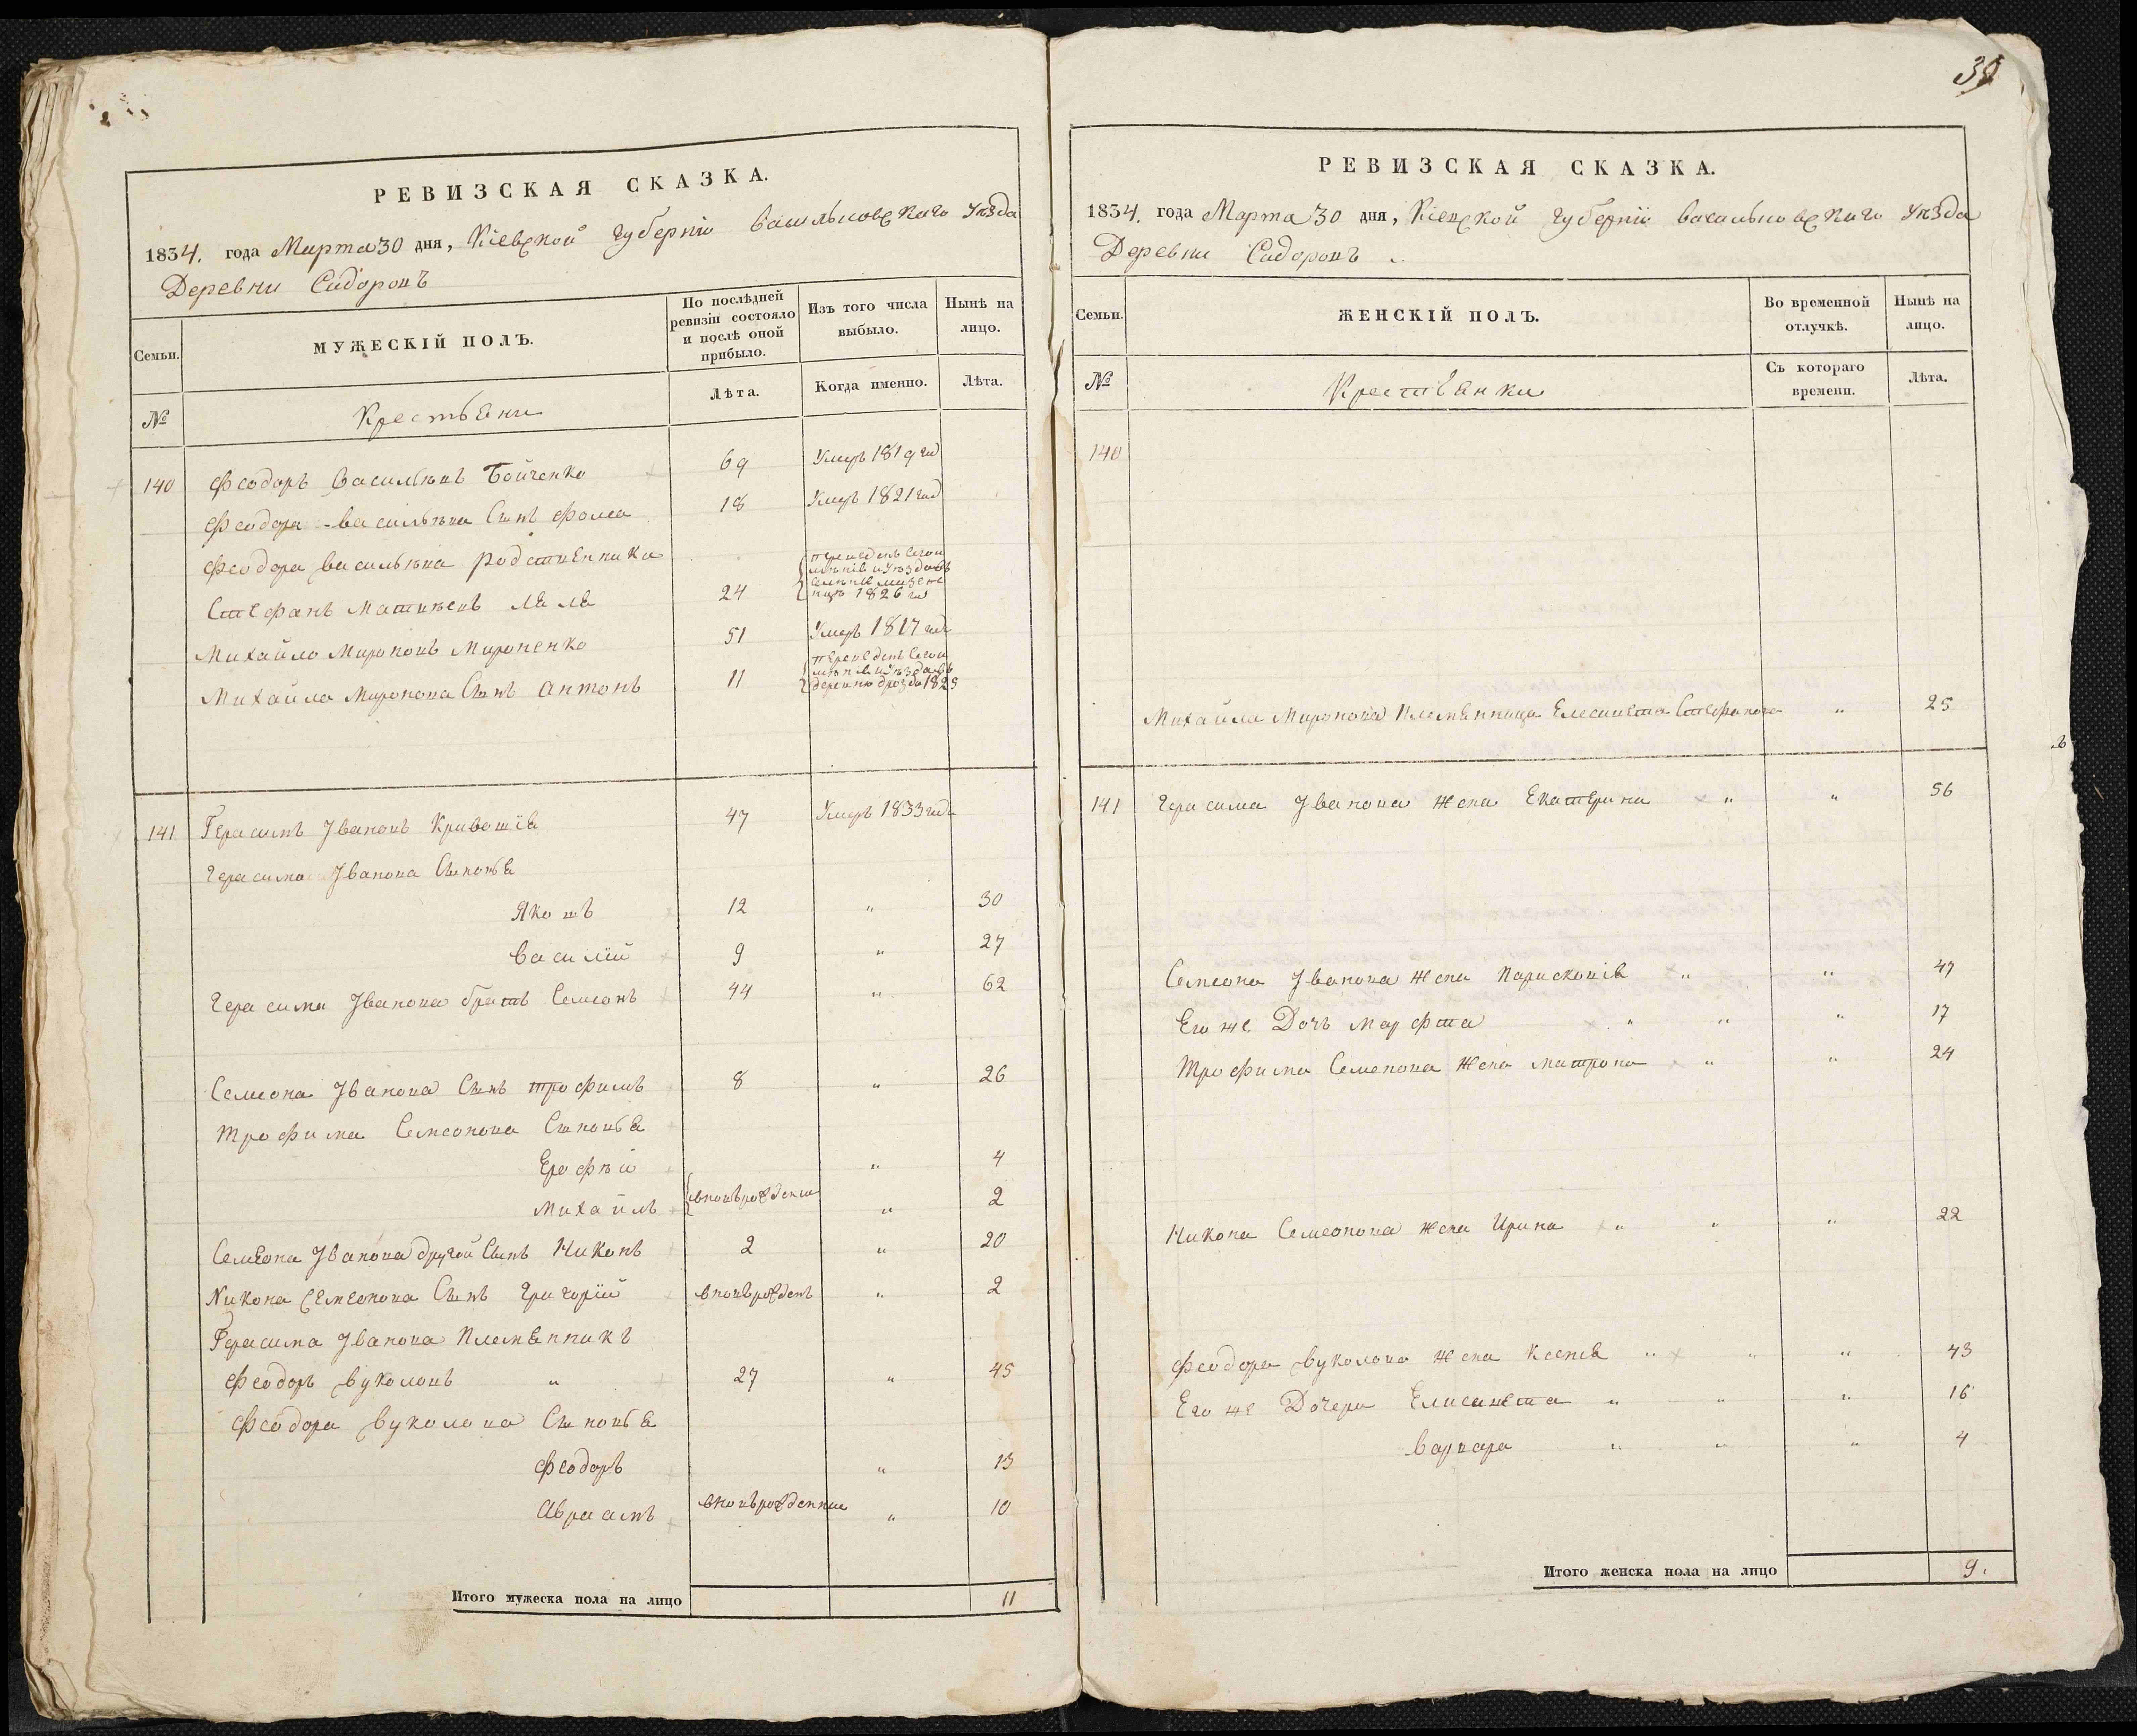 39
РЕВИЗСКАЯ СКАЗКА.
1834. года Марта 30 дня, Кіевской Губерніи Васильковскаго Уѣзда
Деревни Сидоровъ
Семьи.
МУЖЕСКІЙ ПОЛЪ.
По послѣдней ревизіи состояло и послѣ оной прибыло.
Изъ того числа выбыло.
Нынѣ на лицо.
№
Крестьяни
Лѣта.
Когда именно.
Лѣта.
140 Феодоръ Васильевъ Бойченко 69 Умеръ 1819 год
Феодора Васильева Сынъ Фома 18 Умеръ 1821 год
Феодора Васильева родственники
Стефанъ Матвѣевъ 24 1826
Михайло Мироновъ Мироненко 51 Умеръ 1817 год
Михайла Миронова Сынъ Антонъ 11 1823
141 Герасимъ Ивановъ Кривошія 47 Умеръ 1833 год
Герасима Иванова Сыновья
Яковъ 12 " 30
Василій 9 " 27
Герасима Иванова братъ Семеонъ 44 " 62
Семеона Иванова Сынъ Трофимъ 8 " 26
Трофима Семеонова Сыновья
Ерофѣй " 4
Михайлъ вновьрождении " 2
Семеона Иванова другой Сынъ Никонъ 2 " 20
Никона Семеонова Сынъ Григорій вновьрожденъ " 2
Герасима Иванова Племянникъ
Феодоръ Вуколовъ " 27 " 45
Феодора Вуколова Сыновья
Феодоръ " 13
Авраамъ вновьрожденнии " 10
Итого мужеска пола на лицо 11
РЕВИЗСКАЯ СКАЗКА.
1834. года Марта 30 дня, Кіевской Губерніи Васильковскаго Уѣзда
Деревни Сидоровъ
Семьи.
ЖЕНСКІЙ ПОЛЪ.
Во временной отлучкѣ.
Нынѣ на лицо.
№
Крестьянки
Съ котораго времени.
Лѣта.
140
Михайла Миронова Племянница Елесавета Стефанова " 25
141 Герасима Иванова жена Екатерина " " 56
Семеона Иванова жена Парисковія " " 47
Его же Дочь Марфта " " " 17
Трофима Семенова жена Матрона " " 24
Никона Семеонова жена Ирина " " " 22
Феодора Вуколова жена Ксенія " " " 43
Его же Дочери Елисавета " " " 16
Варвара " " " 4
Итого женска пола на лицо 9.